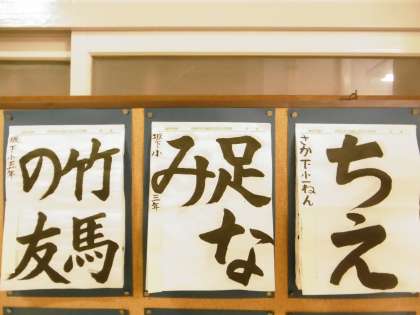 ちえ
さか下小一ねん
足な
み
坂下小 三年
竹馬
の友
坂下小五年